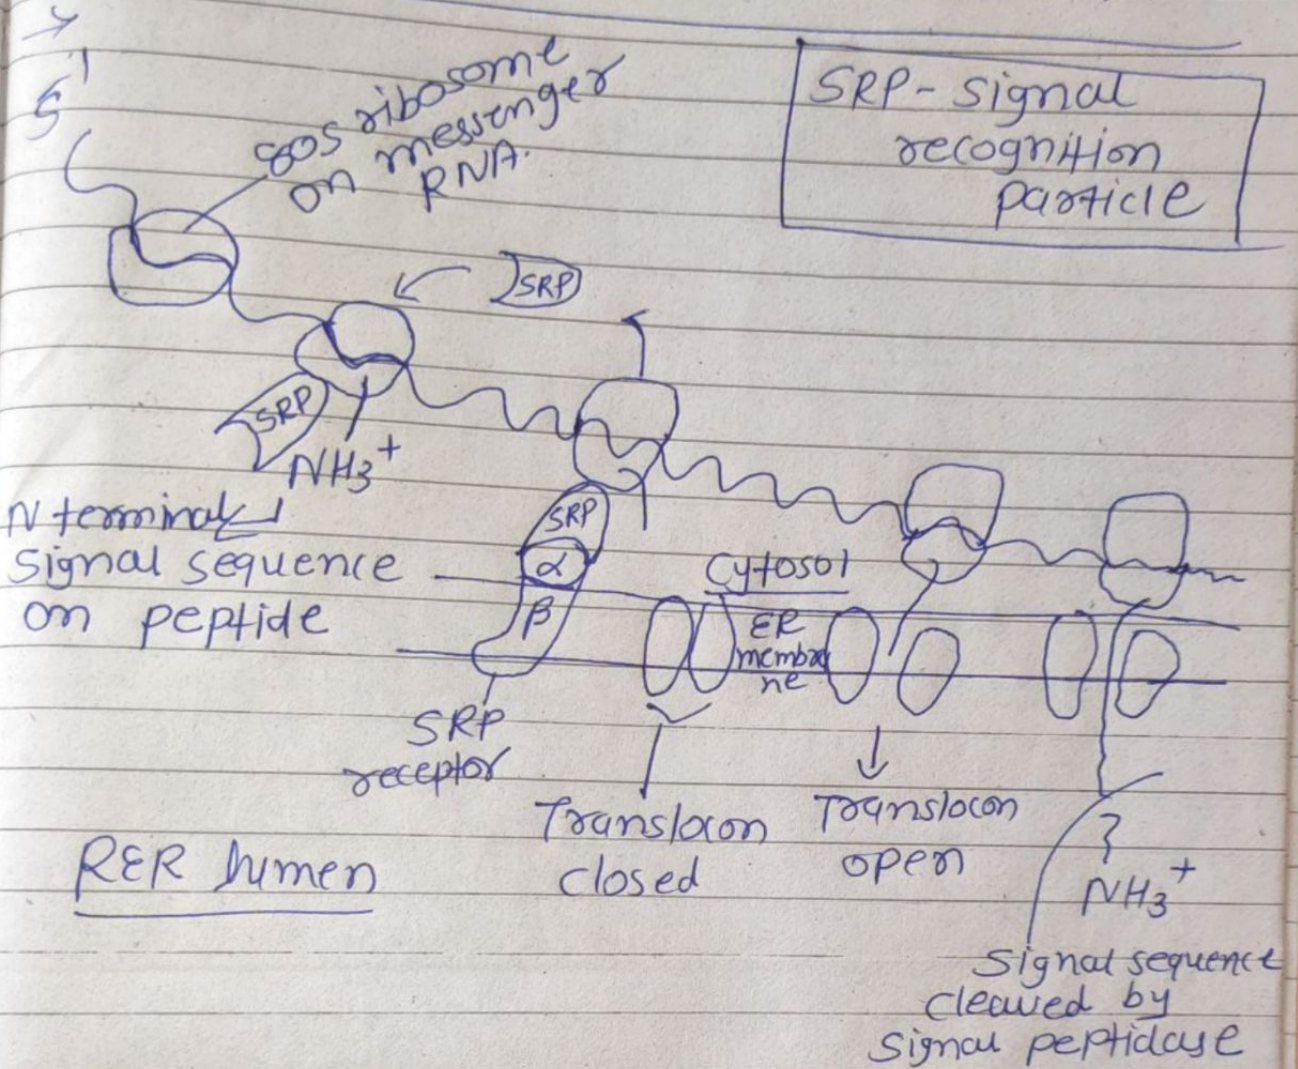 5'
80S ribosome
on messenger
RNA.
SRP - Signal
recognition
particle
SRP
SRP
NH3+
N terminal
Signal sequence
on peptide
SRP
α
β
Cytosol
ER
membra
ne
SRP
receptor
Translocon
closed
Translocon
open
RER lumen
NH3+
Signal sequence
cleaved by
Signal peptidase